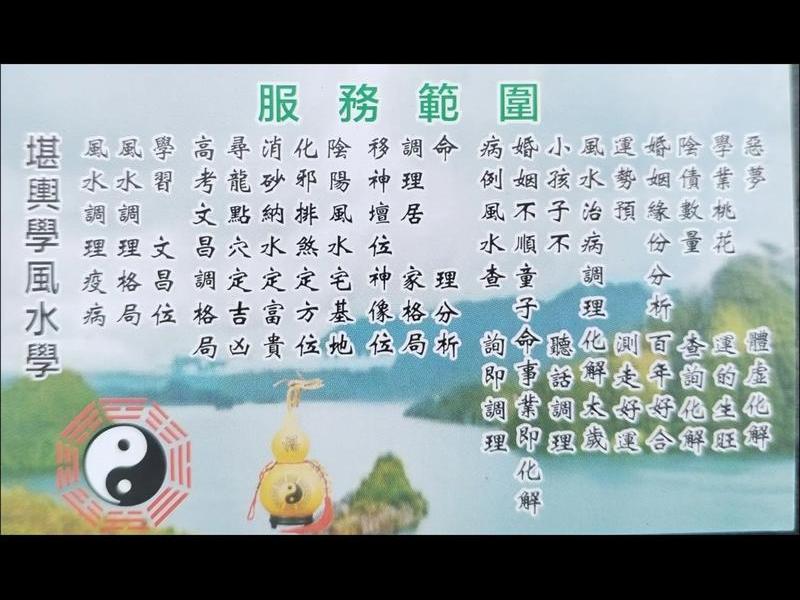 服務範圍
惡夢 體虛化解
學業桃花 運的生旺
陰債數量 查詢化解
婚姻緣份分析 百年好合
運勢預 測走好運
風水治病調理化解太歲
小孩子不 聽話調理
婚姻不順童子命事業即化解
病例風水查 詢即調理
命 理分析
調理居 家格局
移神壇位神像位
陰陽風水宅基地
化邪排煞定方位
消砂納水定富貴
尋龍點穴定吉凶
高考文昌調格局
學習 文昌位
風水調理格局
風水調理疫病
堪輿學風水學